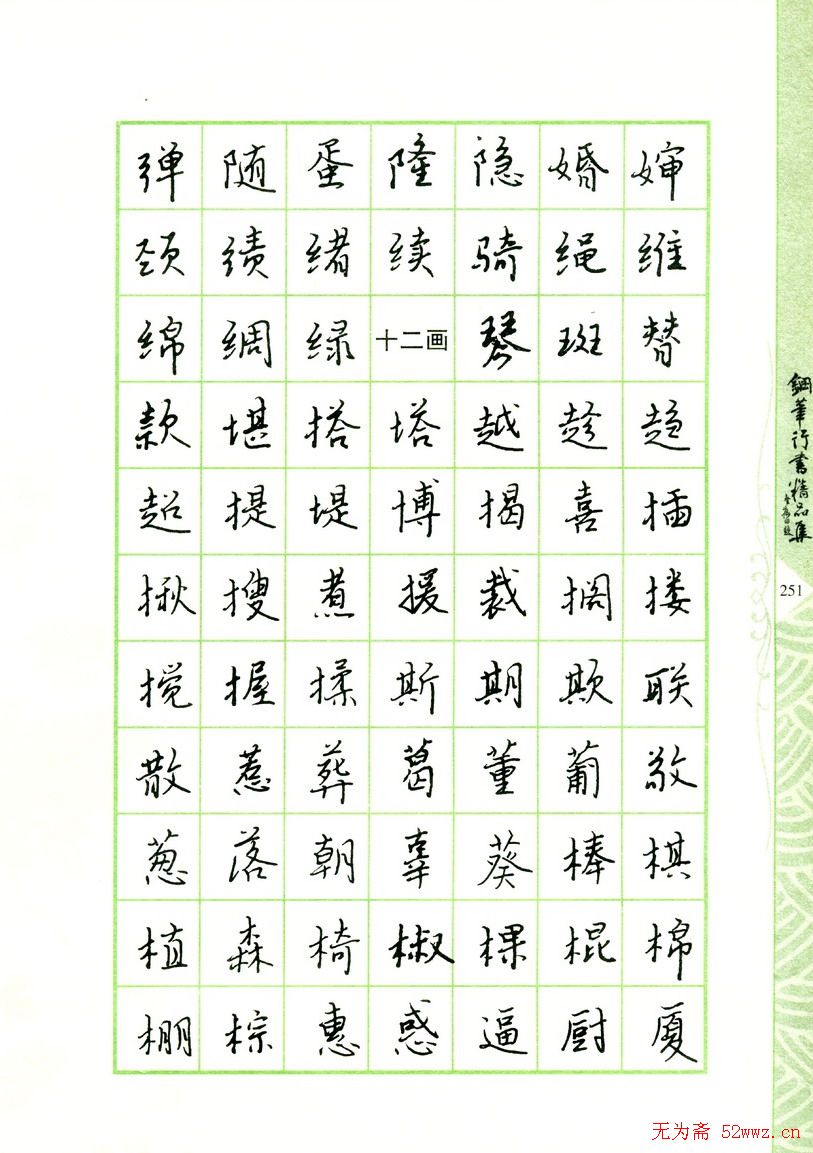 弹随蛋隆隐婚婶
颈绩绪续骑绳维
绵绸绿十二画琴斑替
款堪搭塔越趁趋
超提堤博揭喜插
揪搜煮援裁搁搂
搅握揉斯期欺联
散惹葬葛董葡敬
葱落朝辜葵棒棋
植森椅椒棵棍棉
棚棕惠惑逼厨厦
鋼筆行書精品集
251
无为斋 52wwz.cn